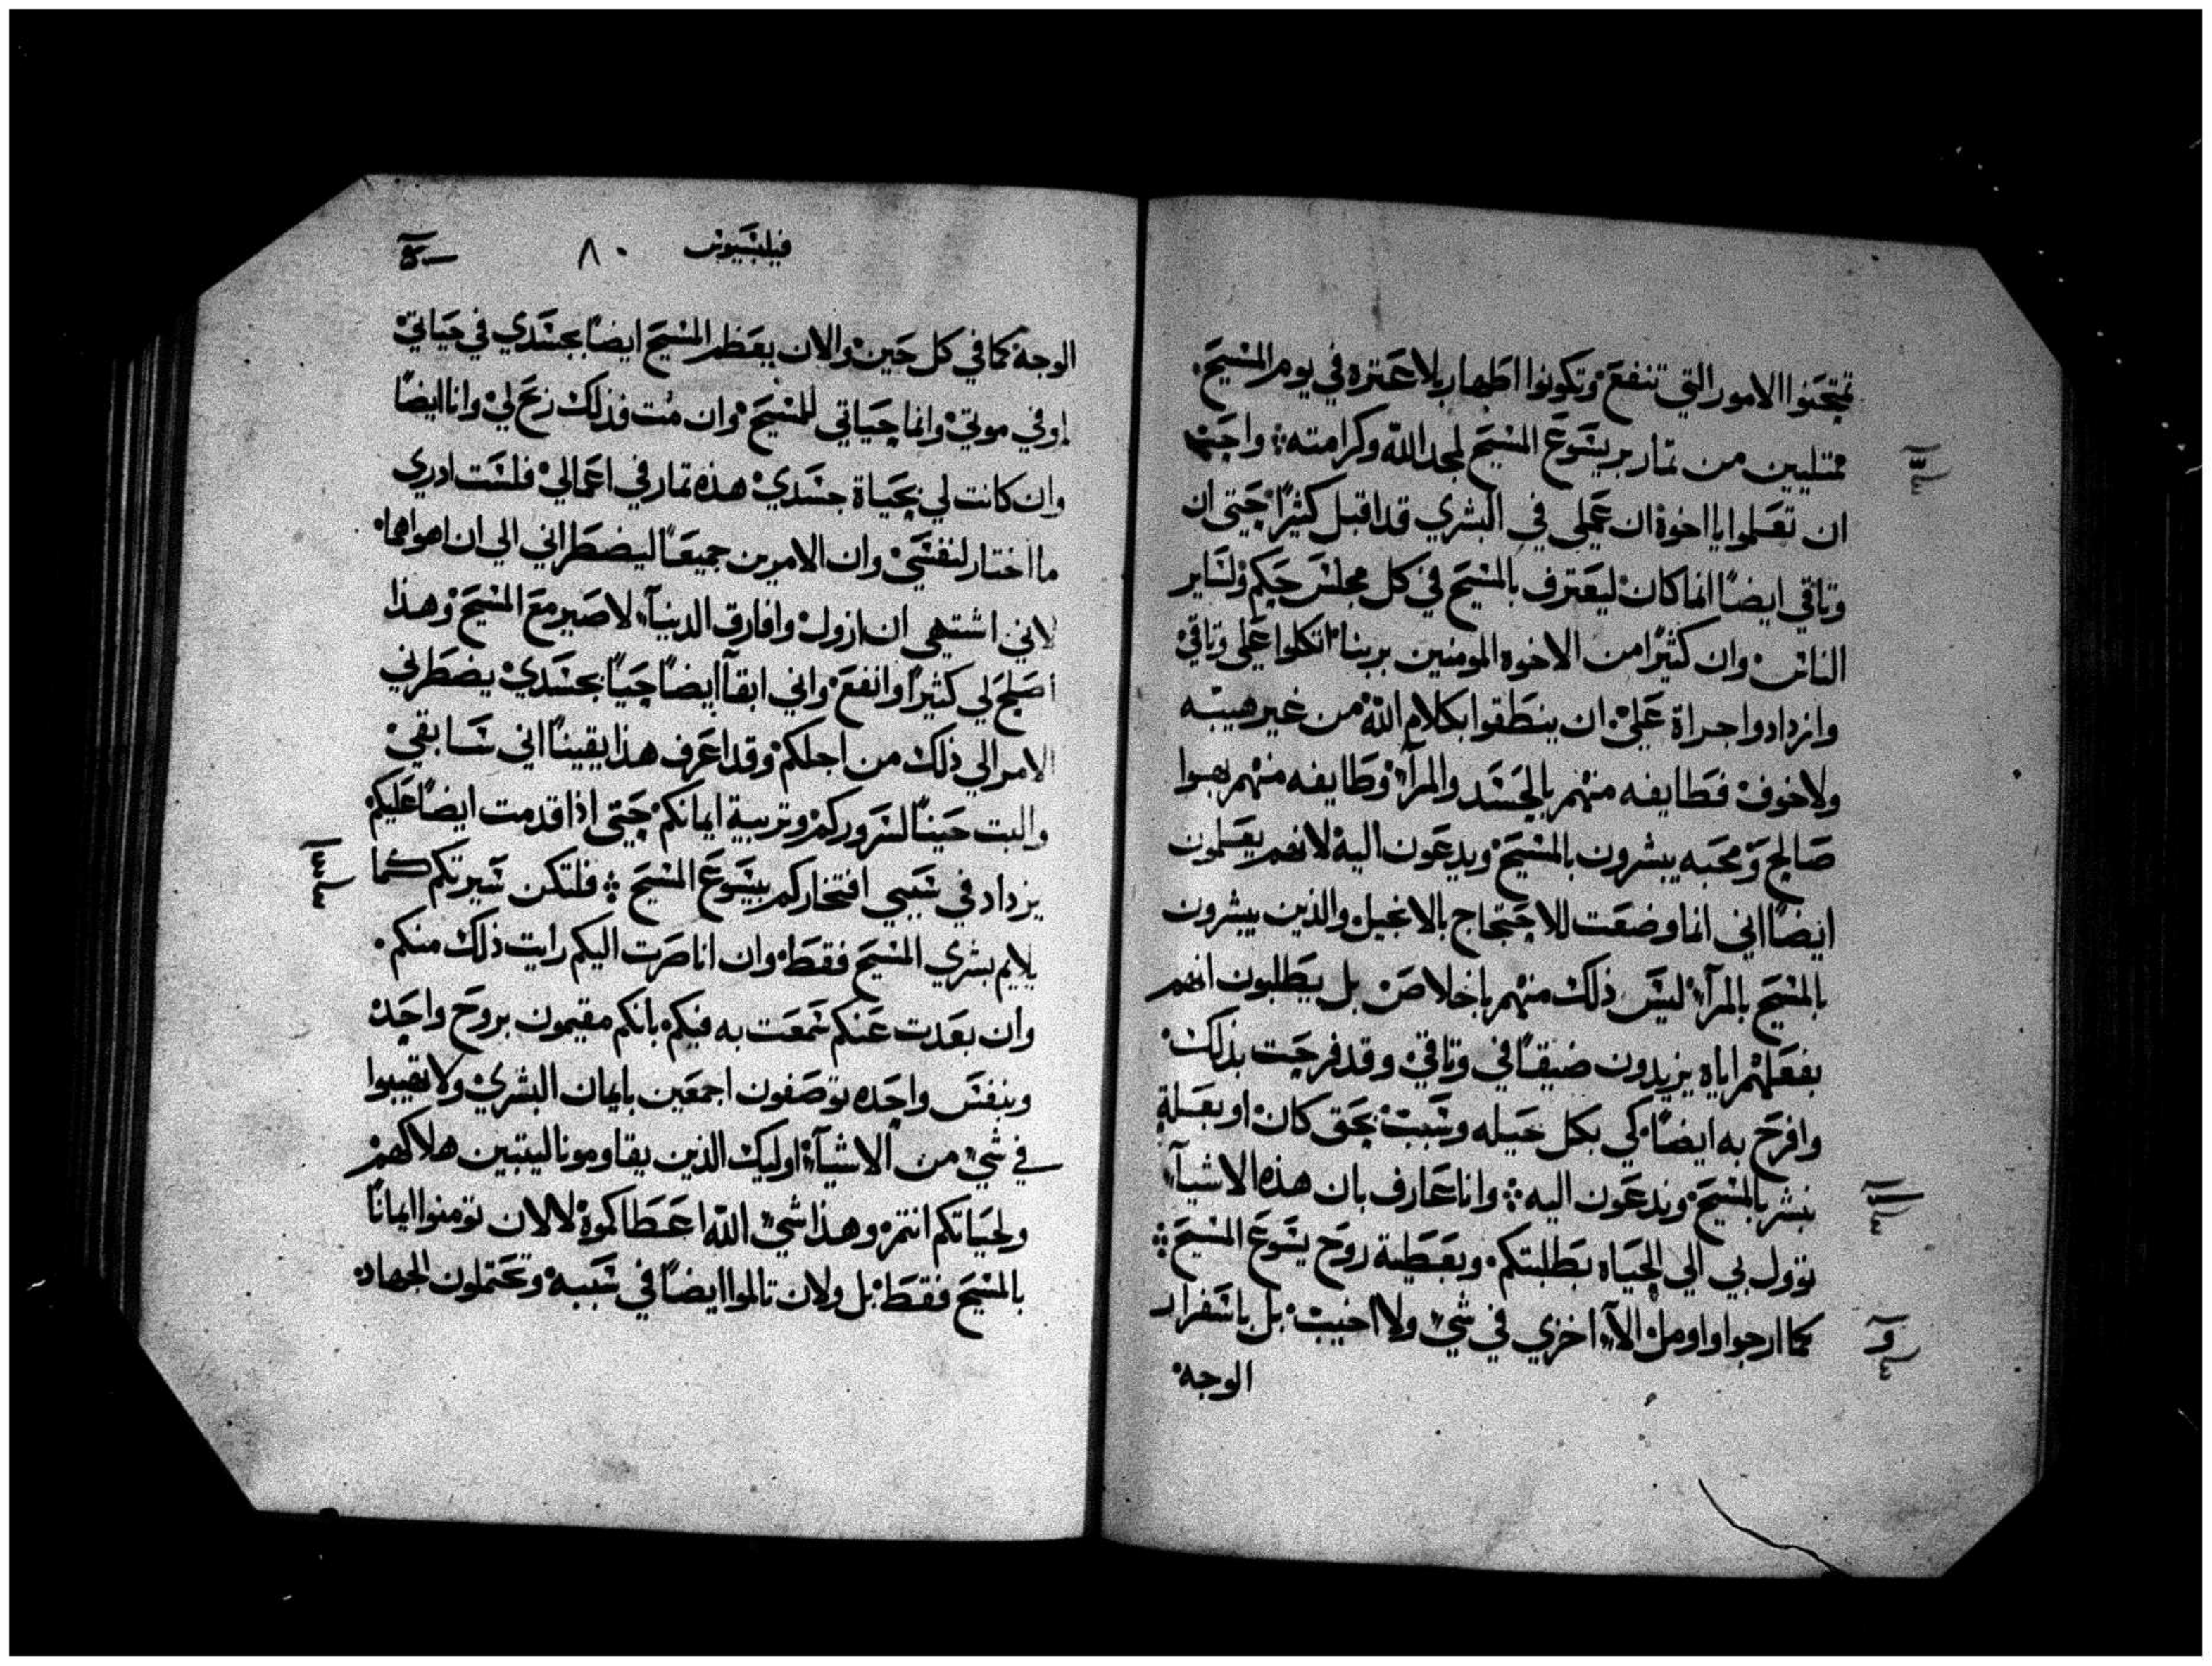 تمتحنوا الامور التي تنفع وتكونوا اطهار بلا عترة في يوم المسيح.
ممتليين من تمار بر يسوع المسيح لمجد الله وكرامته واحب
ان تعلموا يا اخوة ان عملي في البشري قد اقبل كثيرًا حتى ان
وثاقي ايضًا انما كان ليعترف بالمسيح في كل مجلس حكم ولساير
الناس وان كثيرًا من الاخوه المومنين بربنا اتكلوا على وثاقي
وازدادوا جراة على ان ينطقوا بكلام الله من غير هيبه
ولا خوف فطايفه منهم بالحسد والمرآء وطايفه منهم بهوا
صالح ومحبه يبشرون بالمسيح ويدعون اليه لانهم يعلمون
ايضًا اني انما وضعت للاحتجاج بالانجيل والذين يبشرون
بالمسيح بالمرآء ليس ذلك منهم باخلاص بل يطلبون انهم
بفعلهم اياه يزيدون ضيقًا في وثاقي وقد فرحت بذلك
وافرح به ايضًا كي بكل حيله وسبب بحق كان او بعلة
نبشر بالمسيح وندعون اليه وانا عارف بان هذه الاشيآء
توول بي الي الحياه بطلبتكم وبعطية روح يسوع المسيح
كما ارجوا واومل الآ اخزي في شي ولا اخيب بل باسفرار
الوجه
فيلبسيوس ٨٠
الوجه كما في كل حين والان يعظم المسيح ايضًا بجسدي في حياتي
اوفي موتي وانما حياتي للمسيح وان مت فذلك ربح لي وانا ايضًا
وان كانت لي بحياة جسدي هذه تمار في اعمالي فلست ادري
ما اختار لنفسي وان الامرين جميعًا ليضطراني الي ان اهواهما
لاني اشتهي ان ازول وافارق الدنيآء لاصير مع المسيح وهذا
اصلح لي كثيرًا وانفع واني ابقآ ايضًا حيًا بجسدي يضطرني
الامر الي ذلك من اجلكم وقد اعرف هذا يقينًا اني سابقي
والبت حينًا لسروركم وتربية ايمانكم حتى اذا قدمت ايضًا عليكم
يزداد في سببي افتخاركم بيسوع المسيح فلتكن سيرتكم كما
يلايم بشري المسيح فقط وان انا صرت اليكم رايت ذلك منكم
وان بعدت عنكم سمعت به فيكم بانكم مقيمون بروح واحد
وبنفس واحده توصفون اجمعين بايمان البشري ولا تهيبوا
في شي من الاشيآء اوليك الذين يقاومونا ليتبين هلاكهم
ولحياتكم انتم وهذا شي الله اعطاكموة لا لان تومنوا ايمانًا
بالمسيح فقط بل ولان تالموا ايضًا في سببه وتحتملون الجهاد